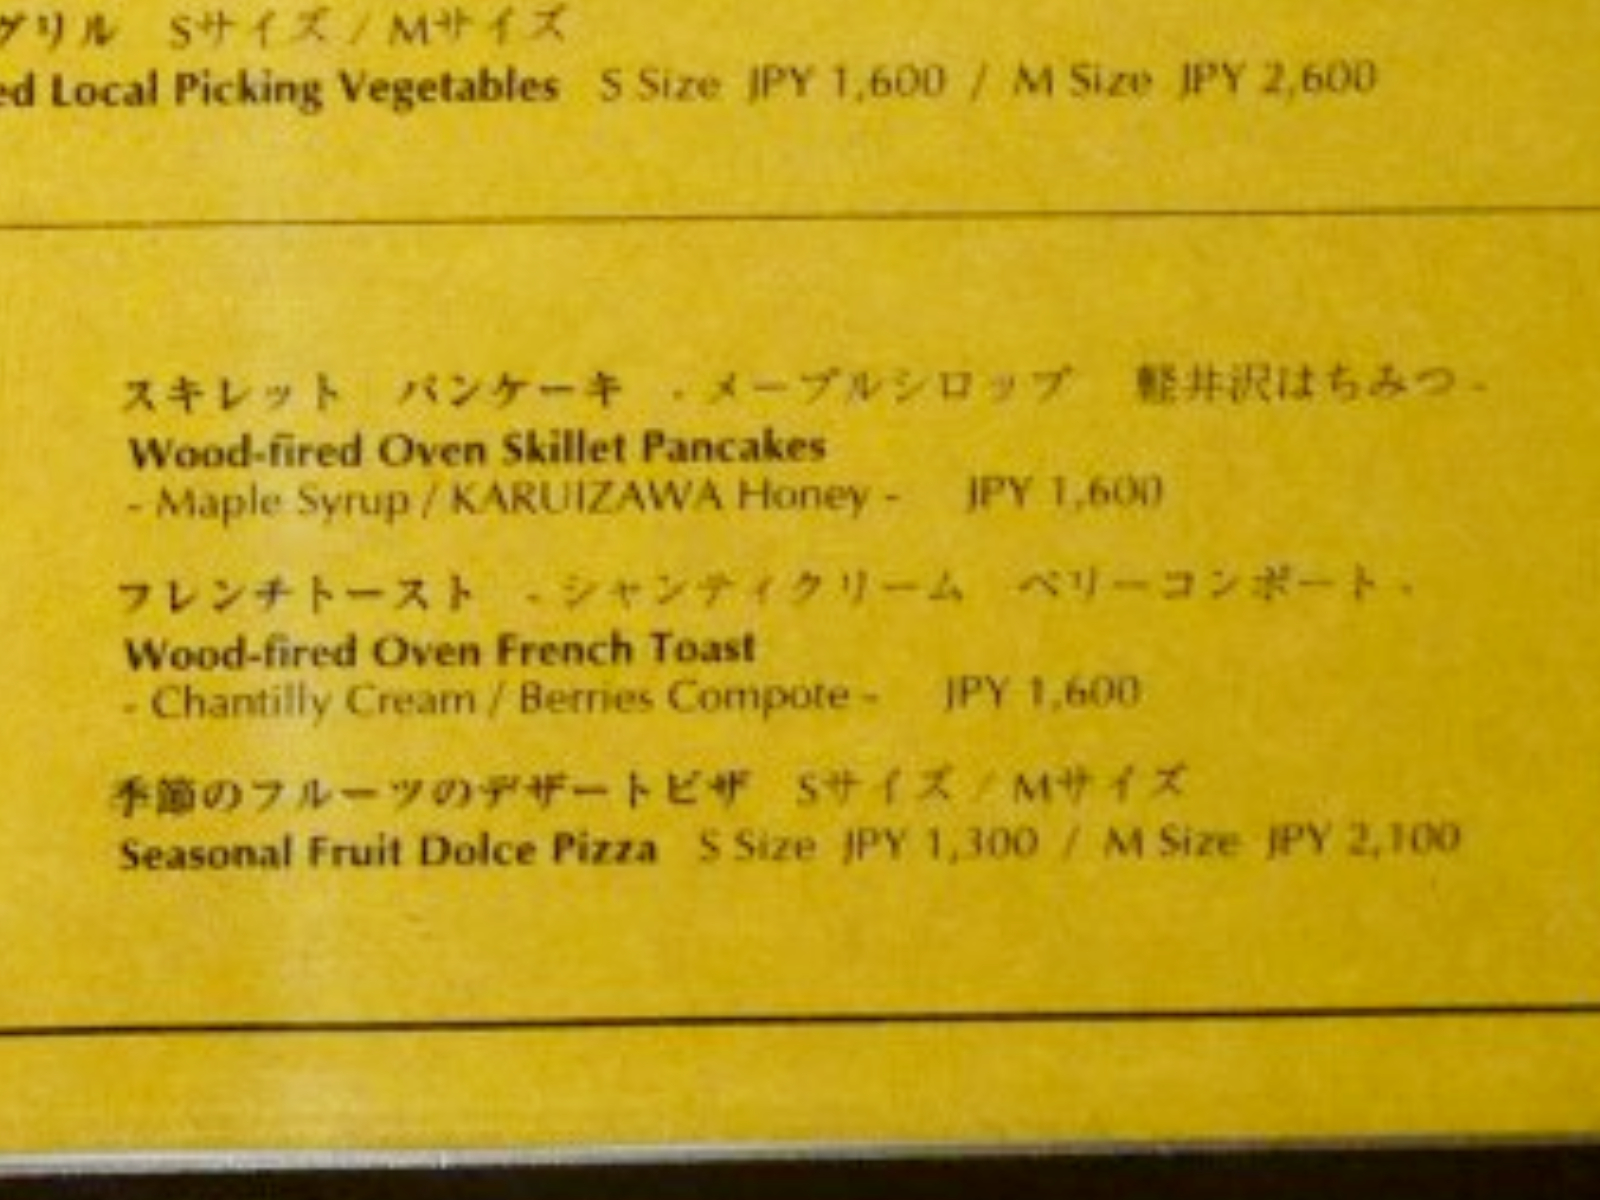 グリル Sサイズ / Mサイズ
ed Local Picking Vegetables S Size JPY 1,600 / M Size JPY 2,600
スキレット パンケーキ - メープルシロップ 軽井沢はちみつ -
Wood-fired Oven Skillet Pancakes
- Maple Syrup / KARUIZAWA Honey - JPY 1,600
フレンチトースト - シャンティクリーム ベリーコンポート -
Wood-fired Oven French Toast
- Chantilly Cream / Berries Compote - JPY 1,600
季節のフルーツのデザートピザ Sサイズ / Mサイズ
Seasonal Fruit Dolce Pizza S Size JPY 1,300 / M Size JPY 2,100